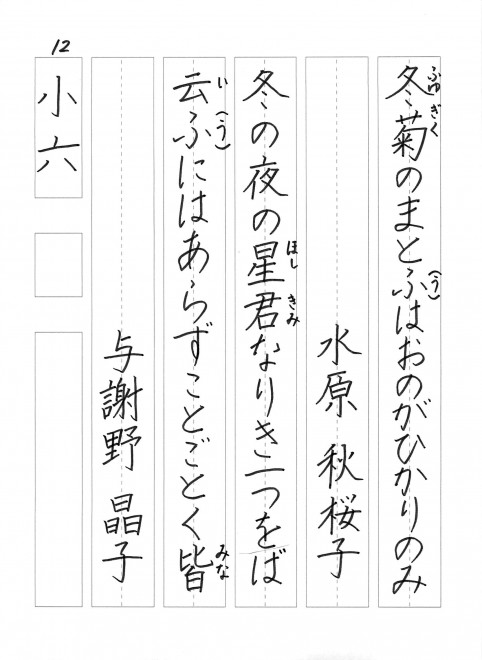 12
冬菊のまとふはおのがひかりのみ
ふゆぎく
(う)
水原 秋桜子
冬の夜の星君なりき一つをば
ほし きみ
云ふにはあらずことごとく皆
い(う)
みな
与謝野 晶子
小六